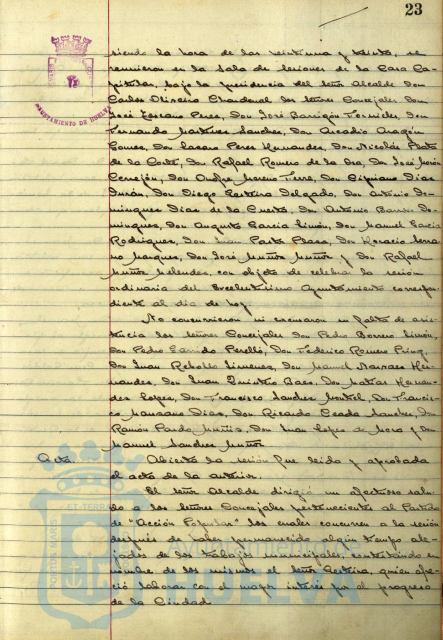 23
AYUNTAMIENTO DE HUELVA
siendo la hora de las veintiuna y treinta, se
reunieron en la Sala de sesiones de la Casa Ca-
pitular, bajo la presidencia del señor Alcalde Don
Carlos Oliveira Chardenal los señores Concejales Don
José Lozano Perez, Don José Barrigón Fornieles, Don
Fernando Martinez Sanchez, Don Arcadio Aragón
Gomez, Don Lazaro Perez Hernandez, Don Nicolás
de la Don Rafael Romero de la Osa, Don José Marín
Cerrejón, Don Onofre Moreno Don Cipriano Dias
Durán, Don Diego Delgado, Don Antonio Do-
minguez Dias de la Cuesta, Don Antonio Do-
minguez, Don Augusto Garcia Limón, Don Manuel Garcia
Rodriguez, Don Juan Don Horacio Serra-
no Marquez, Don José Muñoz Muñoz y Don Rafael
Muñoz Melendez, con objeto de celebrar la sesión
ordinaria del Excelentisimo Ayuntamiento correspon-
diente al dia de hoy.
No concurrieron ni excusaron su falta de asis-
tencia los señores Concejales Don Pedro Borrero Limón,
Don Pedro Garrido Perelló, Don Federico Romero
Don Juan Rebollo Jimenez, Don Manuel Narvaez Her-
nandez, Don Juan Quintero Baez, Don Matias Hernan-
dez Lopez, Don Francisco Sanchez Don Francis-
co Manzano Dias, Don Ricardo Sanchez, Don
Ramón Pardo Muñiz, Don Juan Lopez de Mora y Don
Manuel Sanchez Muñoz
Acta. Abierta la sesión fue leida y aprobada
el acta de la anterior.
El señor Alcalde dirigió un afectuoso salu-
do a los señores Concejales pertenecientes al Partido
de "Acción Popular" los cuales concurren a la sesión
después de haber permanecido algún tiempo ale-
jados de los trabajos municipales, contestando en
nombre de los mismos el señor quien ofre-
ció laborar con el mayor interés por el progreso
de la Ciudad.
PORTUS MARIS ET TERRAE
HUELVA